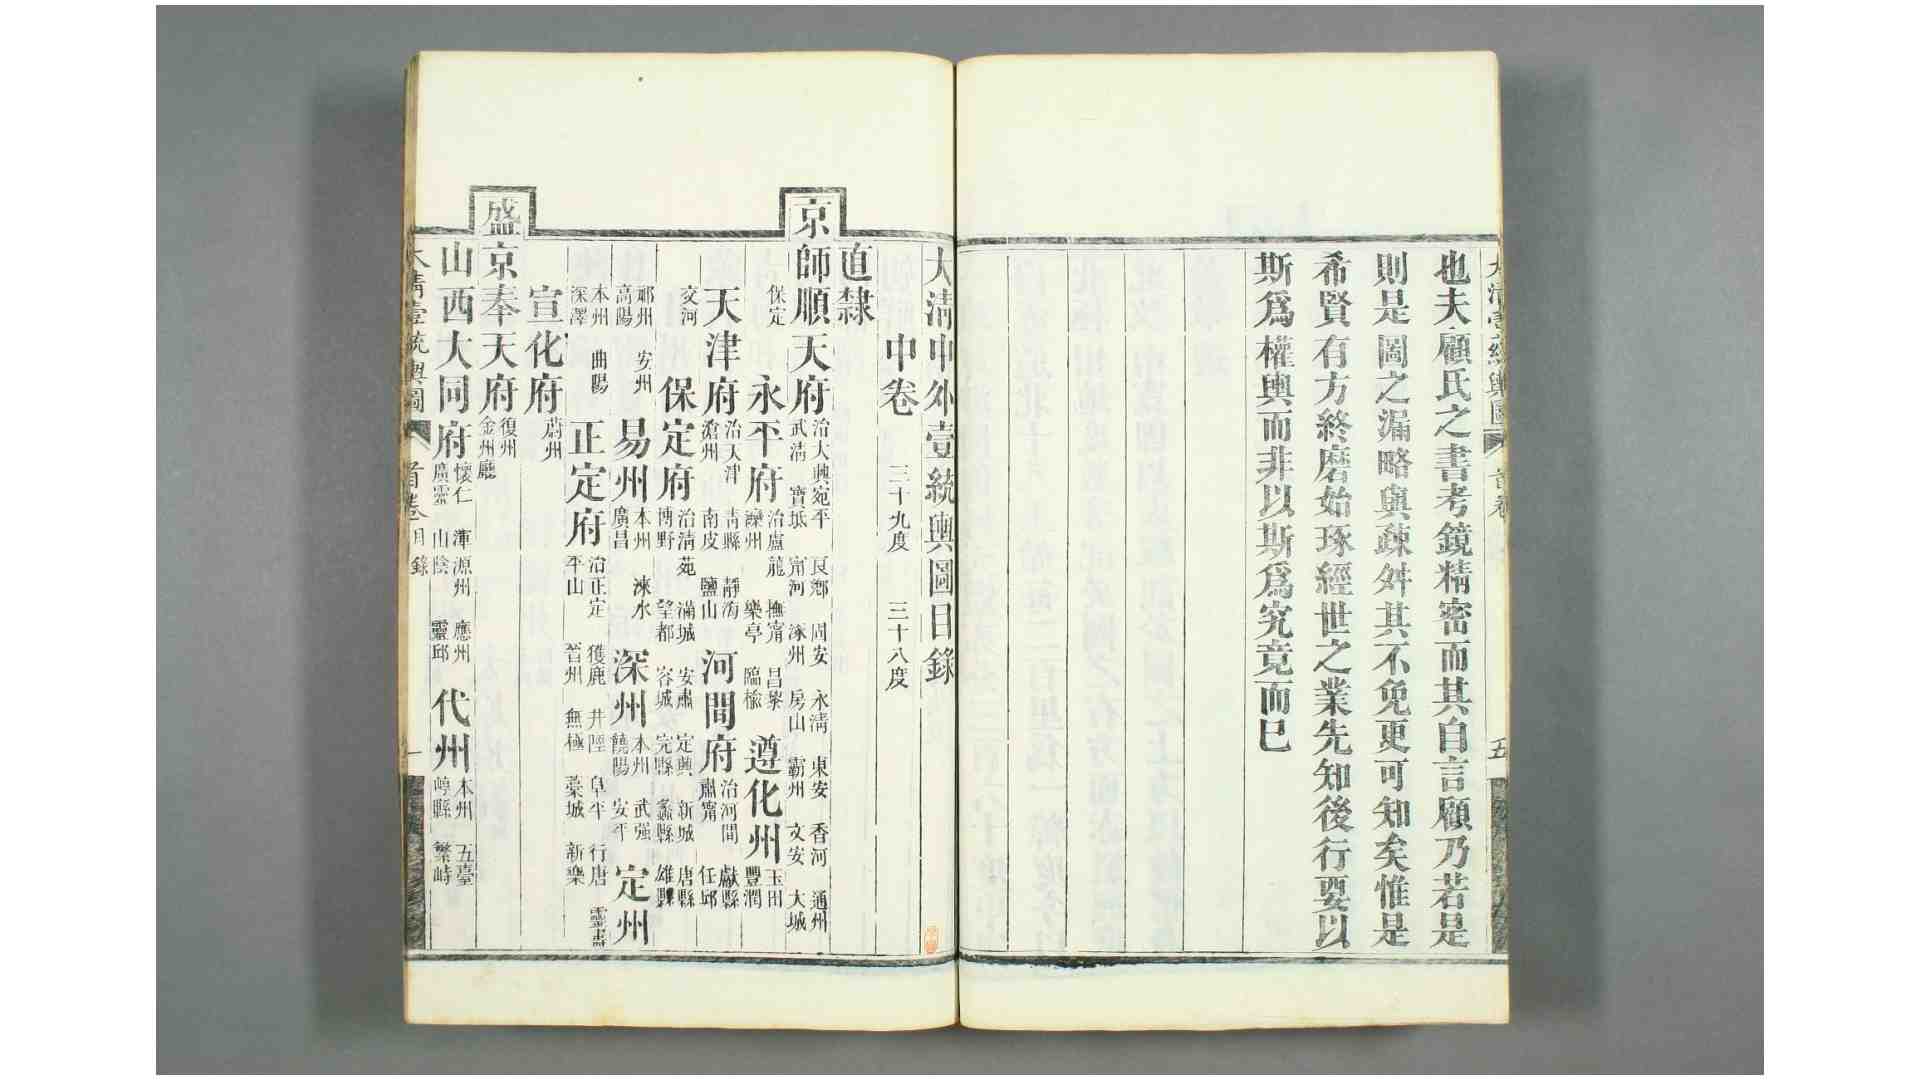 大清壹統輿圖 首卷 五
也夫顧氏之書考鏡精密而其自言顧乃若是
則是圖之漏略與疎舛其不免更可知矣惟是
希賢有方終磨始琢經世之業先知後行要以
斯爲權輿而非以斯爲究竟而已
大清中外壹統輿圖目錄
中卷 三十九度 三十八度
直隸
京師順天府 治大興宛平 良鄉 固安 永清 東安 香河 通州 武清 寶坻 甯河 涿州 房山 霸州 文安 大城
保定 永平府 治盧龍 撫甯 昌黎 灤州 樂亭 臨榆 遵化州 玉田 豐潤
天津府 治天津 滄州 青縣 靜海 南皮 鹽山 河間府 治河間 獻縣 肅甯 任邱
交河 保定府 治清苑 滿城 安肅 定興 新城 唐縣 博野 望都 容城 完縣 蠡縣 雄縣
祁州 安州 高陽 易州 本州 淶水 廣昌 深州 本州 武强 饒陽 安平 定州
本州 曲陽 深澤 正定府 治正定 獲鹿 井陘 阜平 行唐 靈壽 平山 晉州 無極 藁城 新樂
宣化府 蔚州
盛京奉天府 復州 金州廳
山西大同府 懷仁 渾源州 應州 廣靈 山陰 靈邱 代州 本州 五臺 崞縣 繁峙
大清壹統輿圖 首卷 目錄 一